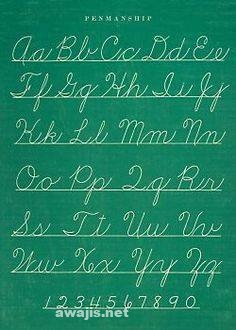 PENMANSHIP
Aa Bb Cc Dd Ee
Ff Gg Hh Ii Jj
Kk Ll Mm Nn
Oo Pp Qq Rr
Ss Tt Uu Vv
Ww Xx Yy Zz
1 2 3 4 5 6 7 8 9 0
awajis.net